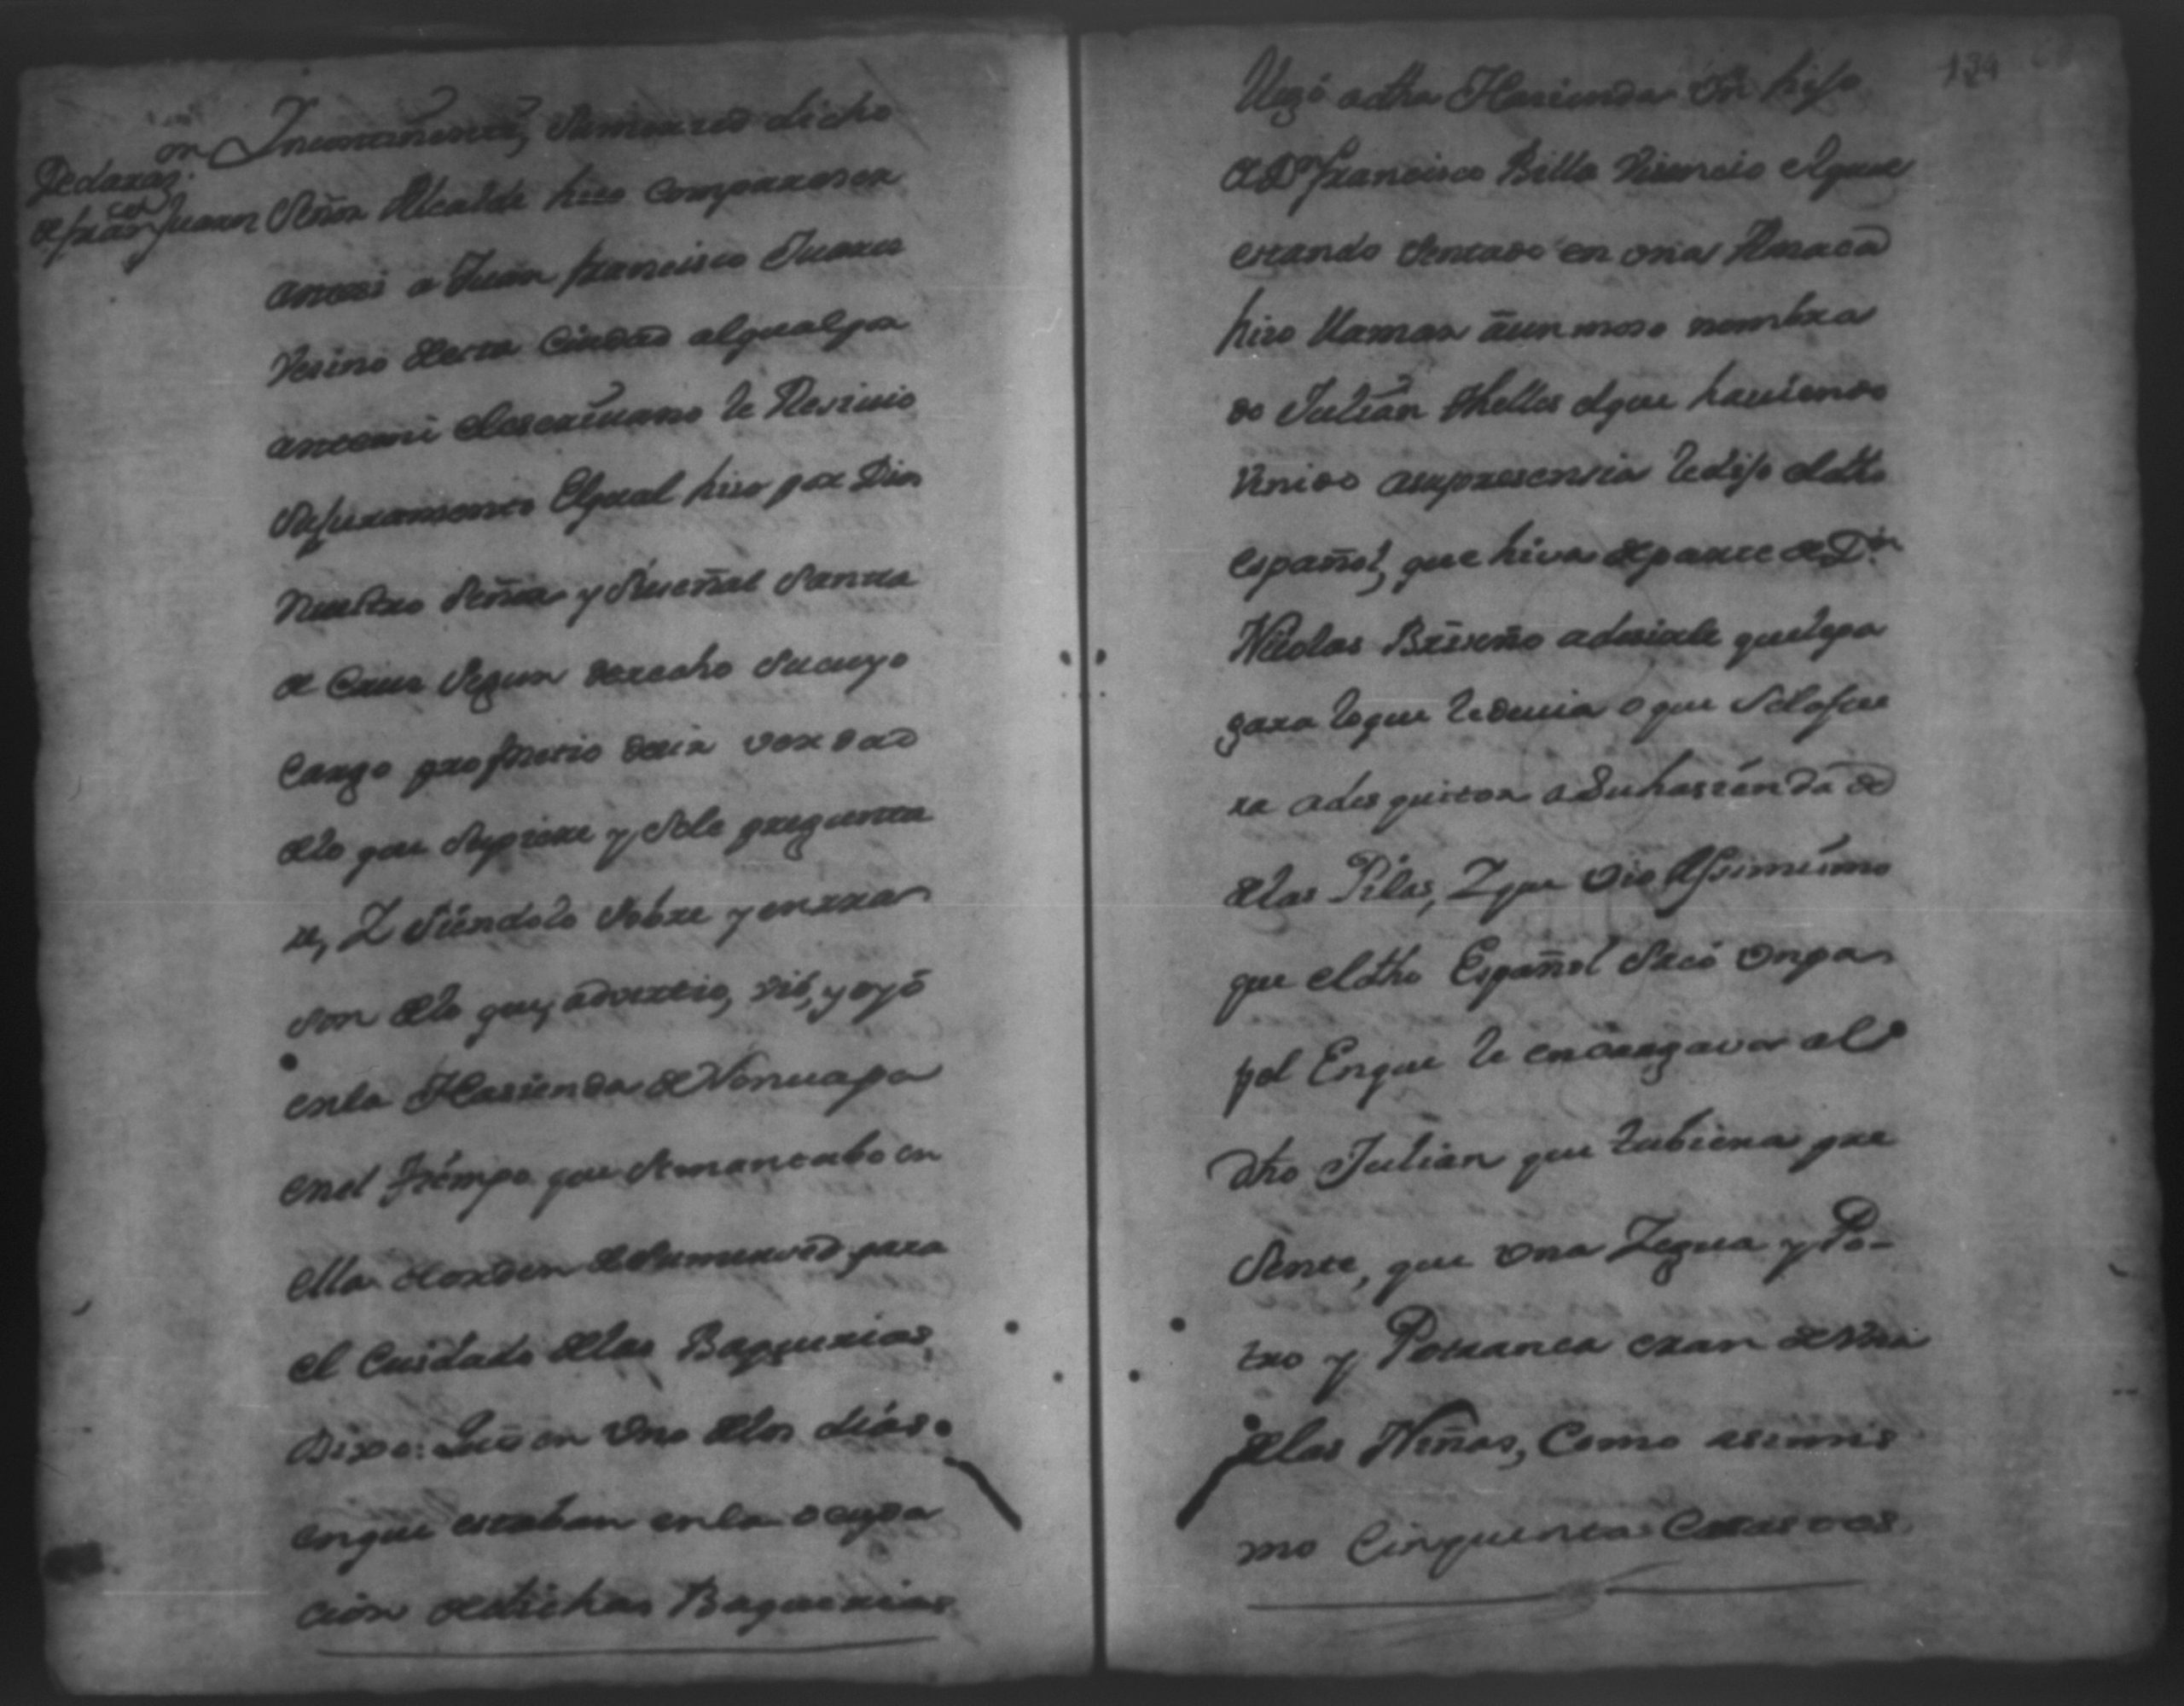 Declaraz.on
de fran.co Juarez
Incontinenti, Sumerced dicho
Señor Alcalde hizo compareser
antemi a Juan francisco Juares
Vesino desta Ciudad alqualpor
antemi elescrivano le Resivio
Sujuramento Elqual hizo por Dios
Nuestro Señor y Sueñal Santa
de Cruz Segun derecho Sucuyo
Cargo prometio desir verdad
delo que Supiere y Sele pregunta
re, Y Siendolo Sobre y enrra
son delo que, advirtio, vio, y oyó
enla Hasienda de Nonuapa
enel tiempo que Semantubo en
ella deorden deSumerced para
el Cuidado delas Baquerias,
Dixo: Que en Uno delos dias
enque estaban enla ocupa
cion dedichas Baquerias
129
Llegó adha Hasienda Un hijo
de Dn francisco Billa Visencio elque
estando Sentado en una Amaca
hizo llamar âun moso nombra
do Julian thelles elque haviendo
Venido asupresensia ledijo eldho
español, que hiva departe de Dn
Nicolas Briseño adesirle quelepa
gara loque ledevia o que Selofue
ra adesquitar aSuhasienda de
delas Pilas, Y que vio Assimismo
que eldho Español Sacó Unpa
pel Enque le encargavan al
dho Julian que tubiera pre
Sente, que Una Yegua y Po-
tro y Potranca eran de Una
delas Niñas, Como asimis
mo Cinquenta